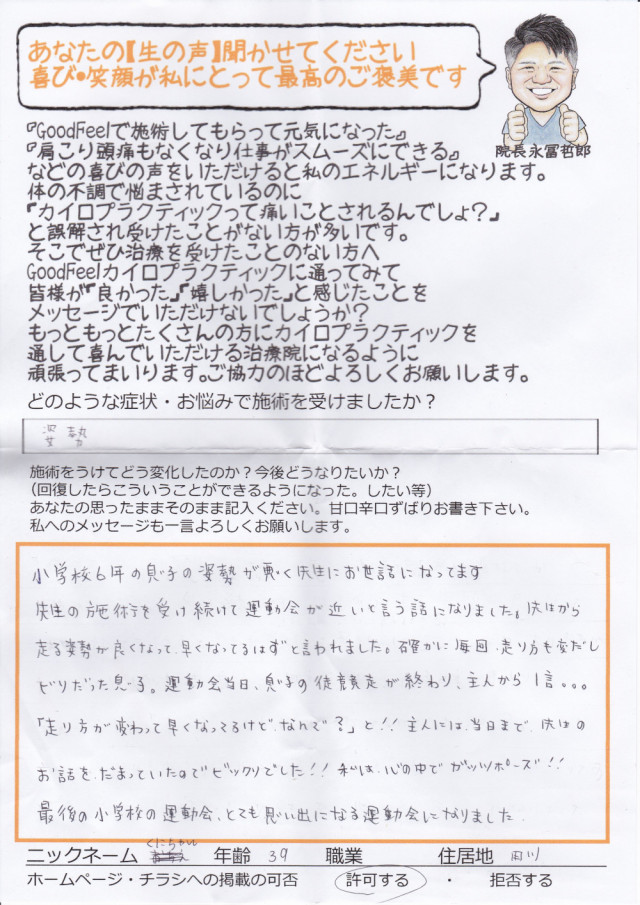 あなたの【生の声】聞かせてください
喜び●笑顔が私にとって最高のご褒美です
院長 永冨哲郎
『GoodFeelで施術してもらって元気になった』
『肩こり頭痛もなくなり仕事がスムーズにできる』
などの喜びの声をいただけると私のエネルギーになります。
体の不調で悩まされているのに
『カイロプラクティックって痛いことされるんでしょ?』
と誤解され受けたことがない方が多いです。
そこでぜひ治療を受けたことのない方へ
GoodFeelカイロプラクティックに通ってみて
皆様が『良かった』『嬉しかった』と感じたことを
メッセージでいただけないでしょうか?
もっともっとたくさんの方にカイロプラクティックを
通して喜んでいただける治療院になるように
頑張ってまいります。ご協力のほどよろしくお願いします。
どのような症状・お悩みで施術を受けましたか?
姿勢
施術をうけてどう変化したのか?今後どうなりたいか?
(回復したらこういうことができるようになった。したい等)
あなたの思ったままそのまま記入ください。甘口辛口ずばりお書き下さい。
私へのメッセージも一言よろしくお願いします。
小学校6年の息子の姿勢が悪く先生にお世話になってます
先生の施術を受け続けて運動会が近いと言う話になりました。先生から
走る姿勢が良くなって、早くなってるはずと言われました。確かに毎回、走り方も変だし
ビリだった息子。運動会当日、息子の徒競走が終わり、主人から1言。。。
「走り方が変わって早くなってるけど、なんで?」と!!主人には、当日まで、先生の
お話を、だまっていたのでビックリでした!!私は、心の中でガッツポーズ!!
最後の小学校の運動会、とても思い出になる運動会になりました。
ニックネーム くにちゃん 年齢 39 職業 住居地 田川
ホームページ・チラシへの掲載の可否 許可する ・ 拒否する